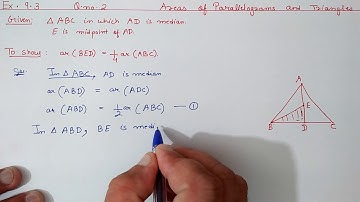 Ex. 9.3 Q.no. 2 Areas of Parallelograms and Triangles
Given: △ ABC in which AD is median.
E is midpoint of AD.
To show: ar (BED) = 1/4 ar (ABC).
Sol: In △ ABC, AD is median
ar (ABD) = ar (ADC)
ar (ABD) = 1/2 ar (ABC) — ①
In △ ABD, BE is medi
A
E
B D C